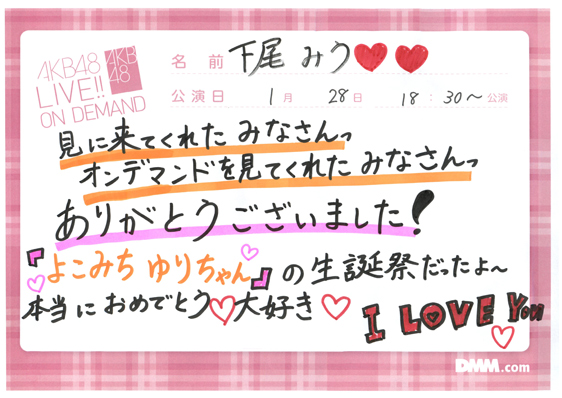 AKB48
LIVE!!
ON DEMAND
AKB
48
名前 下尾みう♥♥
公演日 1月 28日 18:30～公演
見に来てくれたみなさんっ
オンデマンドを見てくれたみなさんっ
ありがとうございました!
『よこみちゆりちゃん』の生誕祭だったよ～
本当におめでとう♡大好き♡
I LOVE You
DMM.com